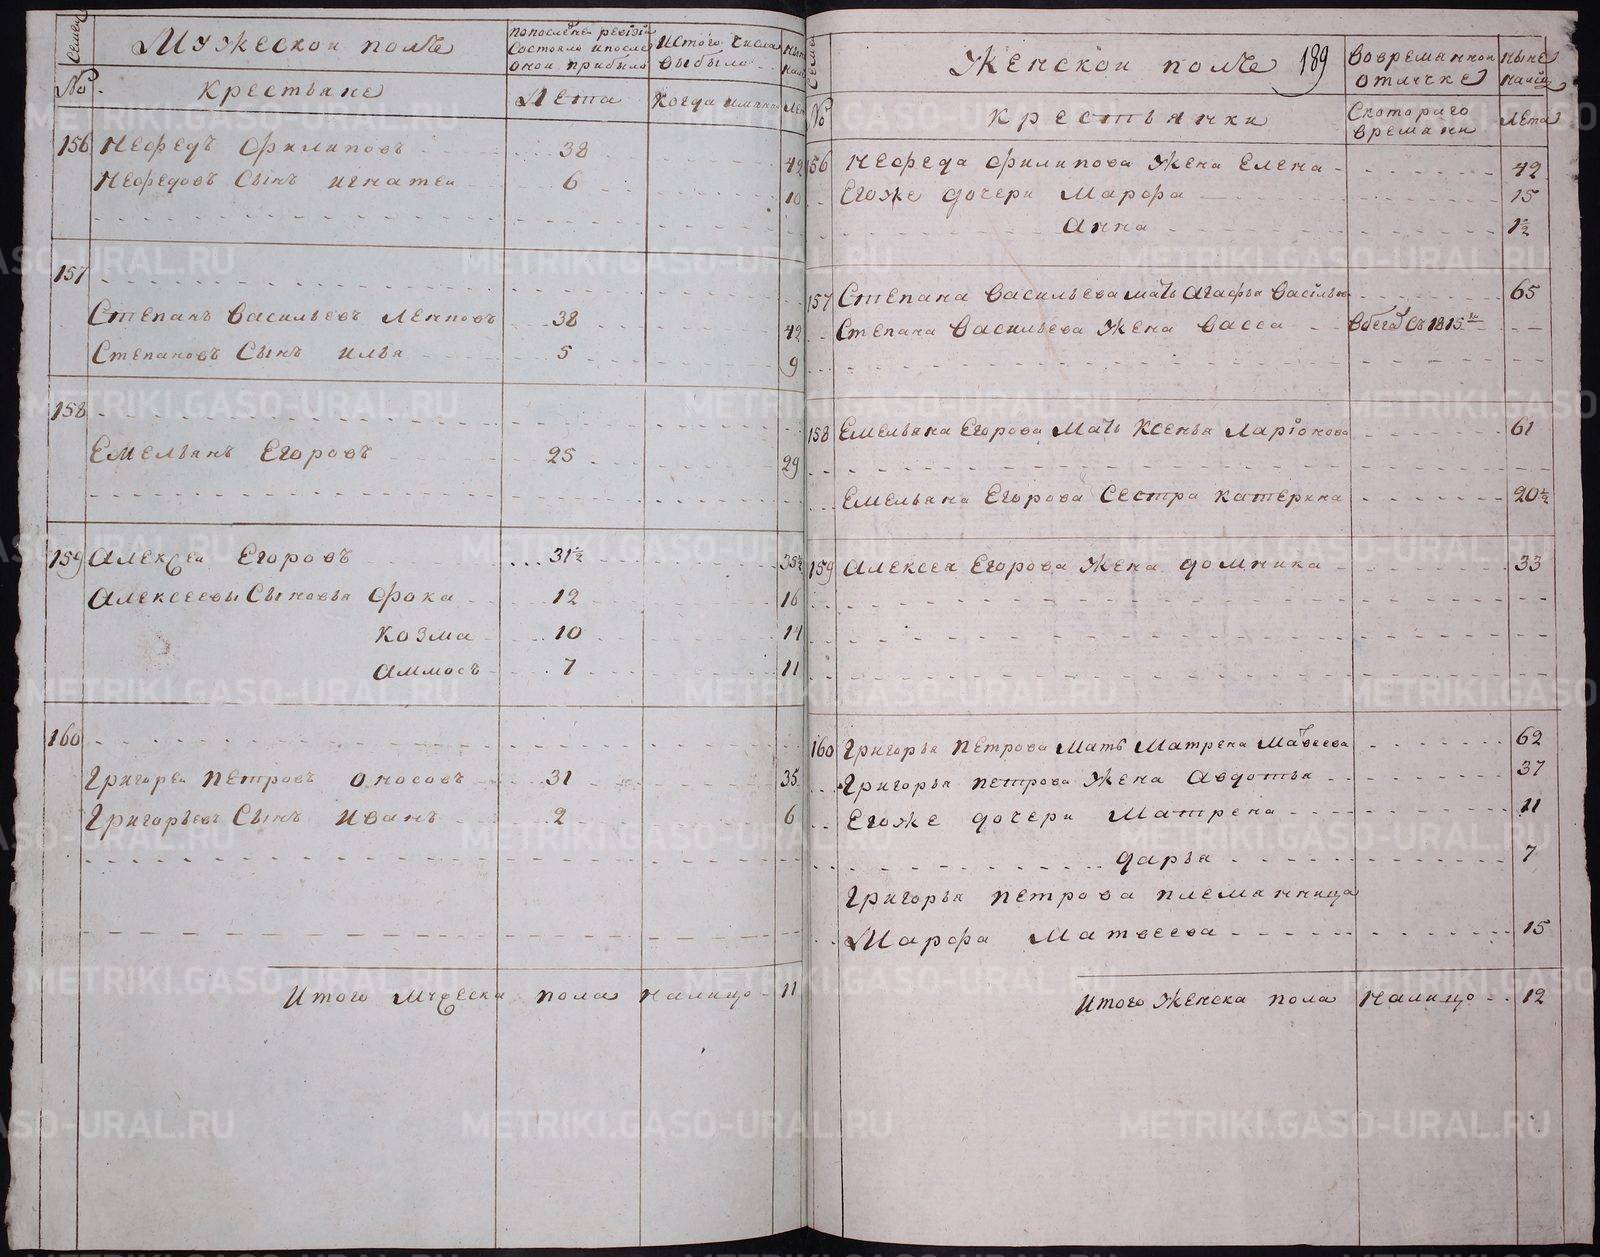 Семей
№
Мужескои полъ
Крестьяне
попоследнеи ревизіи
Состояло ипосле
онои прибыло
Лета
Isтого числа
выбыло
Когда имянно
Лет
156 Неѳедъ Филиповъ 38 42
Неѳедовъ Сынъ игнатеи 6 10
157
Степанъ Васильевъ Леппов 38 42
Степановъ Сынъ илья 5 9
158
Емельянъ Егоровъ 25 29
159 Алексеи Егоровъ 31½ 35½
Алексеевы Сыновья Фока 12 16
Козма 10 14
Аммосъ 7 11
160
Григореи Петровъ Оносовъ 31 35
Григорьевъ Сынъ Иванъ 2 6
Итого Мужеска пола налицо 11
Женскои полъ 189
№
Крестьянки
Вовременнои
отлучке
Скоториго
времени
ныне
налицо
Лета
156 Неѳеда Филипова Жена Елена 42
Егоже дочери Марфа 15
Анна 1½
157 Степана Васильева мать Агафья Васильев 65
Степана Васильева Жена Васса Вбегах съ 1815го
158 Емельяна Егорова Мать Ксенья Ларіонова 61
Емельяна Егорова Сестра Катерина 20½
159 Алексея Егорова Жена домника 33
160 Григорья Петрова Мать Матрена Матвеева 62
Григорья петрова Жена Авдотья 37
Егоже дочери Матрена 11
дарья 7
Григорья петрова племянница
Марфа Матвеева 15
Итого Женска пола налицо 12
METRIKI.GASO-URAL.RU